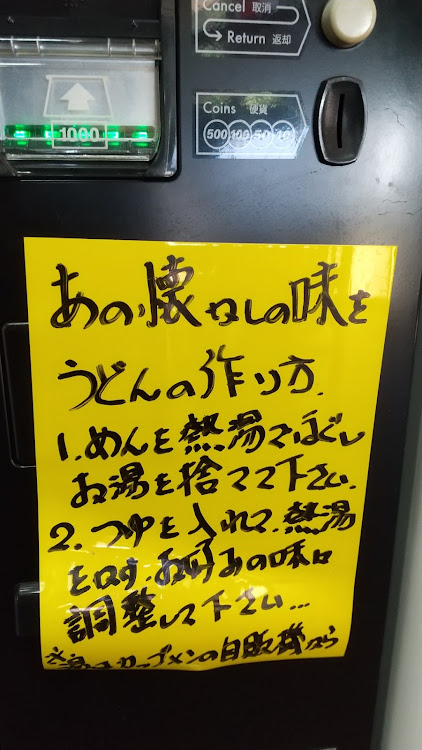 Cancel 取消
Return 返却
1000
Coins 硬貨
500 100 50 10
あの懐かしの味を
うどんの作り方.
1.めんを熱湯でほぐし
お湯を捨てて下さい.
2.つゆを入れて.熱湯
を回す.お好みの味に
調整して下さい...
カップメンの自販機から